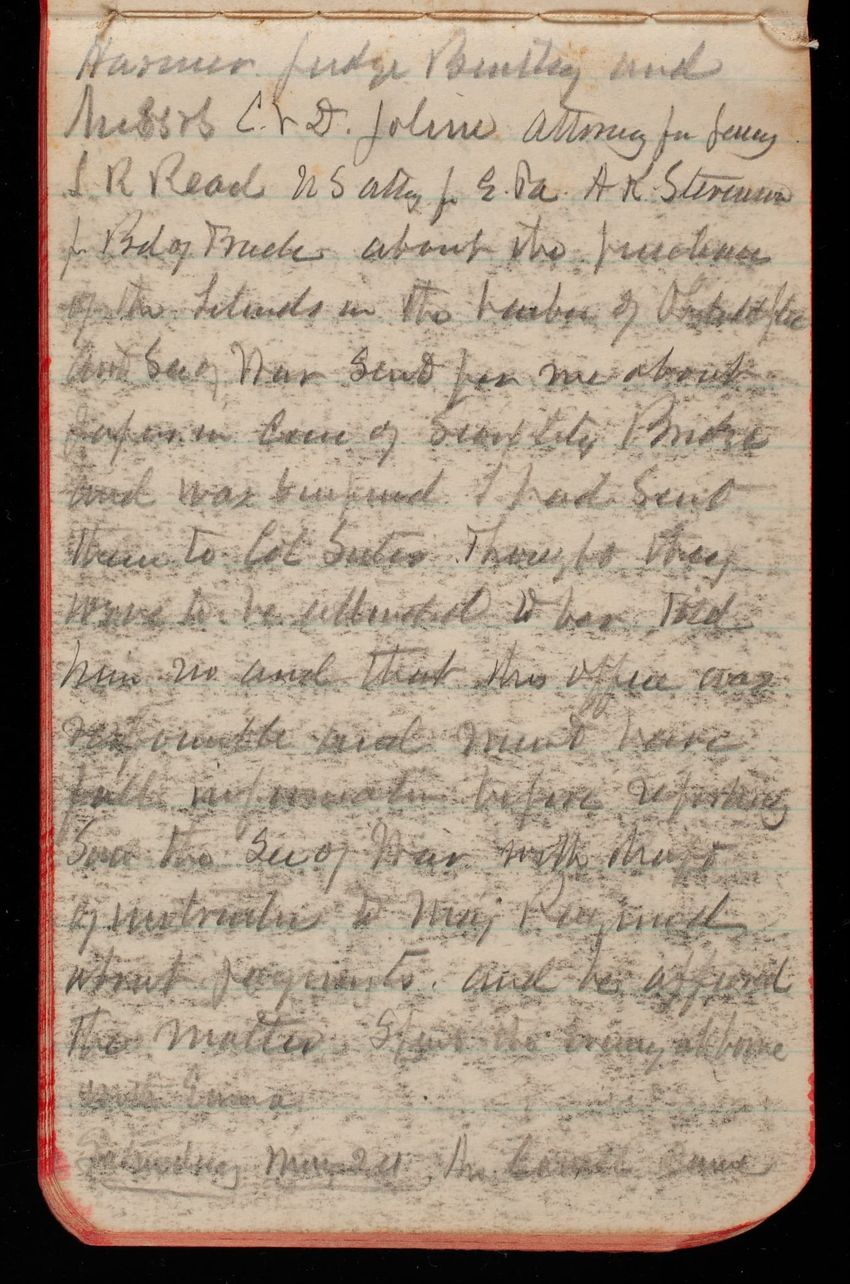 Harmer Judge Bentley and
Messrs C. & D. Joline attorney for Jersey
S. R Read U S atty for E. Pa. A K. Stevenson
for Bd of Trade about the purchase
of the Islands in the harbor of
and Sec of War Sent for me about
papers in Case of Sioux City Bridge
and was surprised I had Sent
them to Col Suter Thought they
were to be submitted to him Told
him no and that this office was
responsible and must have
full information before reporting
Saw the Sec of War with draft
of instruction to Maj Raymond
about payments. and he approved
the matter. Spent the evening at home
with Emma
Saturday May 24. Mr. came